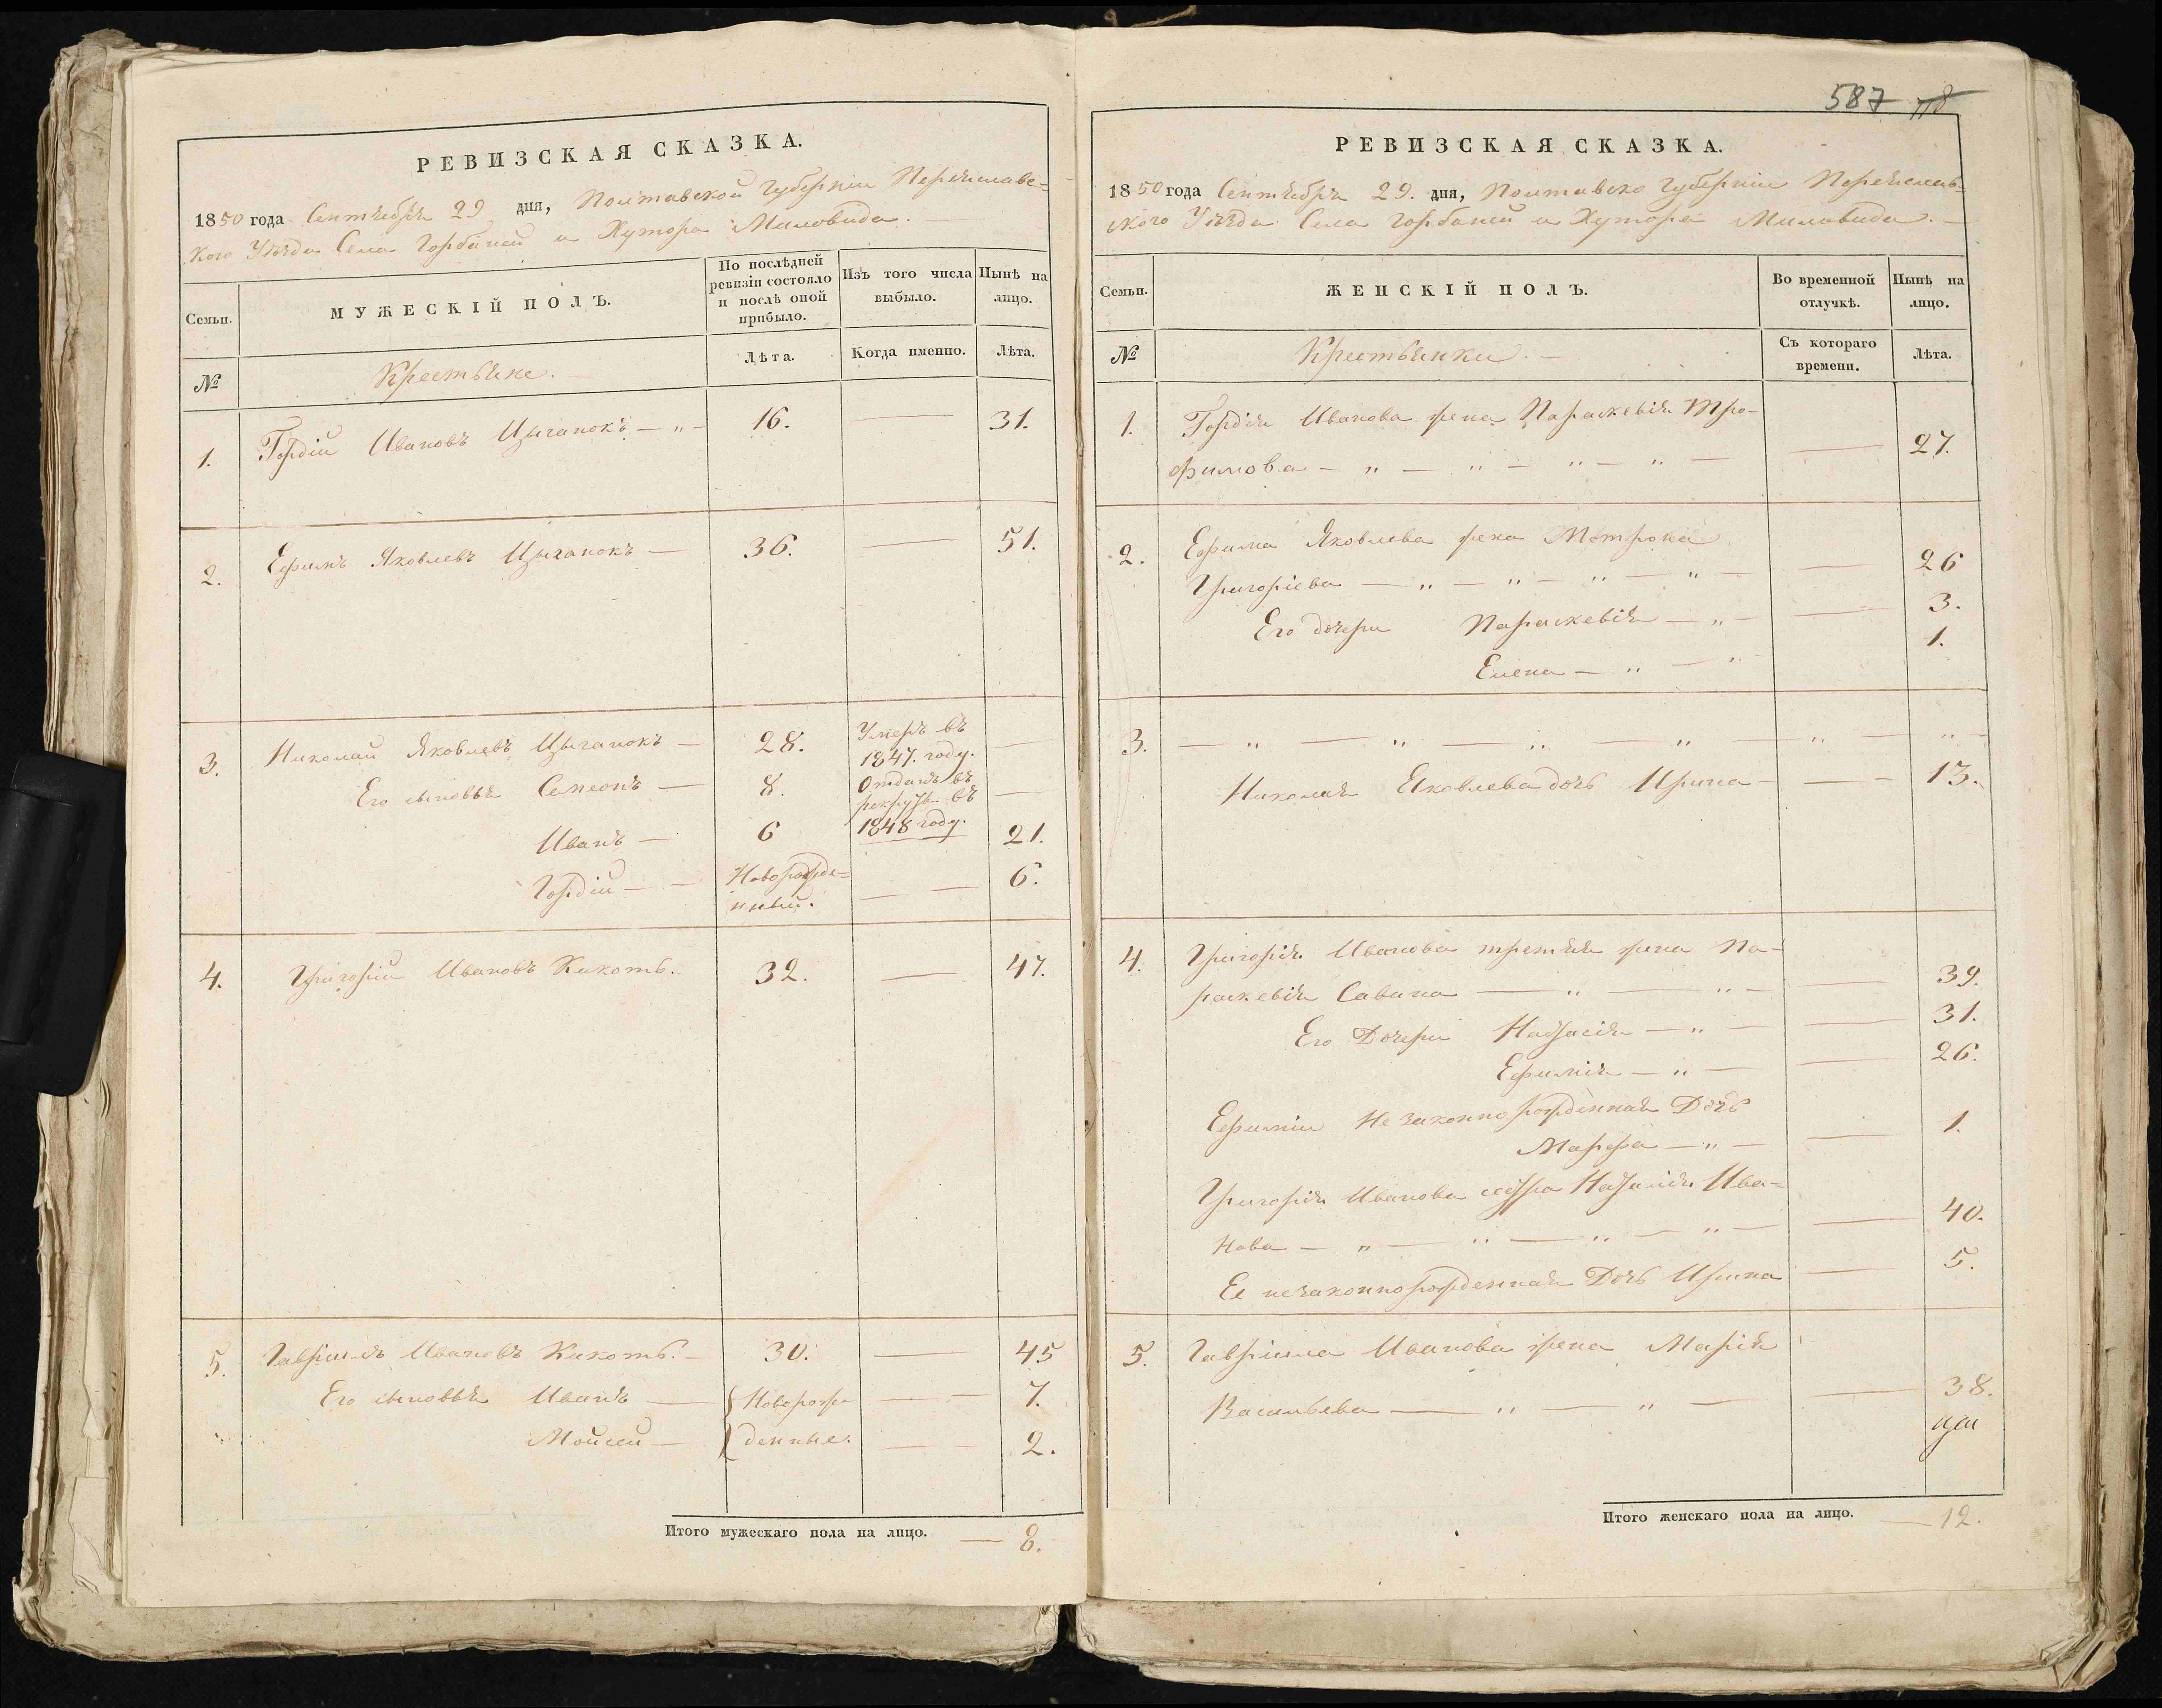 РЕВИЗСКАЯ СКАЗКА.
1850 года Сентября 29 дня, Полтавской Губерніи Переяславс=
кого Уѣзда Села Горбаней и Хутора Миловида.
Семьи.
МУЖЕСКІЙ ПОЛЪ.
По послѣдней ревизіи состояло и послѣ оной прибыло.
Изъ того числа выбыло.
Нынѣ на лицо.
№
Крестьяне.
Лѣта.
Когда именно.
Лѣта.
1. Гордій Ивановъ Цыганокъ — „ — 16. — 31.
2. Ефимъ Яковлевъ Цыганокъ — 36. — 51.
3. Николай Яковлевъ Цыганокъ — 28. Умеръ въ 1847. году. —
Его сыновья Семеонъ — 8. Отданъ въ рекруты въ 1848 году. —
Иванъ — 6 21.
Гордій — — Новорожде=
нный. — — 6.
4. Григорій Ивановъ Кикоть. 32. — 47.
5. Гавріилъ Ивановъ Кикоть. — 30. — 45
Его сыновья Иванъ — Новорож — — 7.
Мойсей — денные. — — 2.
Итого мужескаго пола на лицо. — 8.
587 718
РЕВИЗСКАЯ СКАЗКА.
1850 года Сентября 29. дня, Полтавско Губерніи Переяслав-
ского Уѣзда Села Горбаней и Хутора Миловида. —
Семьи.
ЖЕНСКІЙ ПОЛЪ.
Во временной отлучкѣ.
Нынѣ на лицо.
№
Крестьянки. —
Съ котораго времени.
Лѣта.
1. Гордія Иванова жена Параскевія Тро-
фимова — „ — „ — „ — „ — — 27.
2. Ефима Яковлева жена Мотрона
Григоріева — „ — „ — „ — „ — — 26
Его дочери Параскевія — „ — — 3.
Елена — „ — „ 1.
3. — „ — „ — „ „ — „ — „ —
Николая Яковлева дочь Ирина — — — 13.
4. Григорія Иванова третяя жена Па-
раскевія Савина — „ — „ — — 39.
Его Дочери Настасія — „ — — 31.
Ефимія — „ — — 26.
Ефиміи Незаконно рожденная Дочь
Марфа — „ — — 1.
Григорія Иванова сестра Наталія Ива=
нова — „ — „ — „ — „ — — 40.
Ее незаконнорожденная Дочь Ирина — 5.
5. Гавріила Иванова жена Марія
Васильева — „ — „ — — 38.
Итого женскаго пола на лицо. — 12.